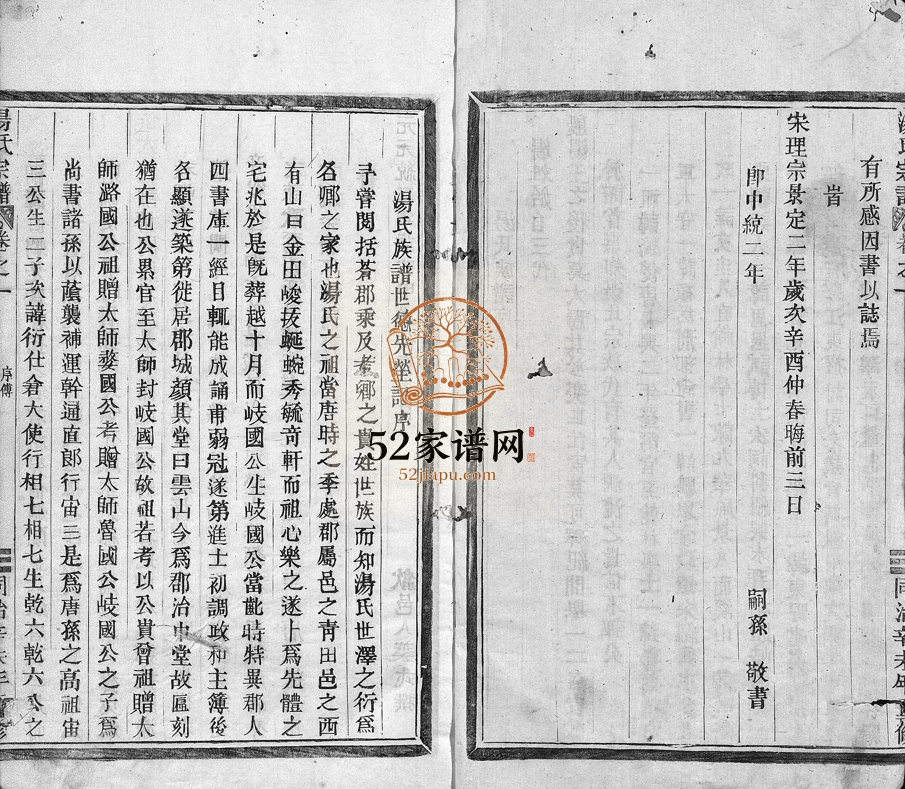 有所感因書以誌焉
旹
宋理宗景定二年歲次辛酉仲春晦前三日
卽中統二年
嗣孫 敬書
湯氏族譜世德先塋記序
予嘗閱括蒼郡乘及考鄉之貴姓世族而知湯氏世澤之衍爲
名鄉之家也湯氏之祖當唐時之季處郡屬邑之靑田邑之西
有山曰金田峻拔蜿蜒秀毓竒軒而祖心樂之遂卜爲先體之
宅兆於是旣葬越十月而岐國公生岐國公當齔時特異郡人
四書庫一經目輒能成誦甫弱冠遂第進士初調政和主簿後
各顯遂築第徙居郡城顏其堂曰雲山今爲郡治中堂故匾刻
猶在也公累官至太師封岐國公故祖若考以公貴曾祖贈太
師潞國公祖贈太師婺國公考贈太師魯國公岐國公之子爲
尚書諸孫以蔭襲補運幹通直郎行宙三是爲唐孫之高祖宙
三公生二子次諱衍仕倉大使行相七相七生乾六乾六公之
湯氏宗譜
卷之一
序傳
52家谱网
52jiapu.com